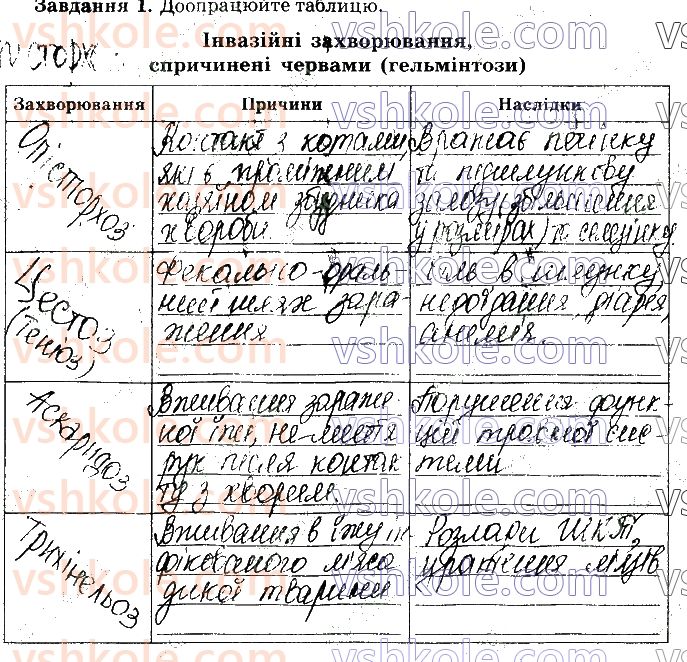 Завдання 1. Доопрацюйте таблицю.
Інвазійні захворювання,
спричинені червами (гельмінтози)
Захворювання Причини Наслідки
Опісторхоз
Контакт з котами,
які є проміжним
хазяїном збудника
хвороби.
Вражає печінку
та підшлункову
залозу (збільшення
у розмірах) та селезінку.
Цестоз
(теніоз)
Фекально-ораль-
ний шлях зара-
ження
Біль в шлунку,
недоїдання, діарея,
анемія.
Аскаридоз
Вживання зараже-
ної їжі, не миття
рук після контак-
ту з хворим.
Порушення функ-
цій травної сис-
теми
Трихінельоз
Вживання в їжу ін
фікованого м'яса
дикої тварини
Розлади ШКТ,
ураження м'язів
vshkole.com